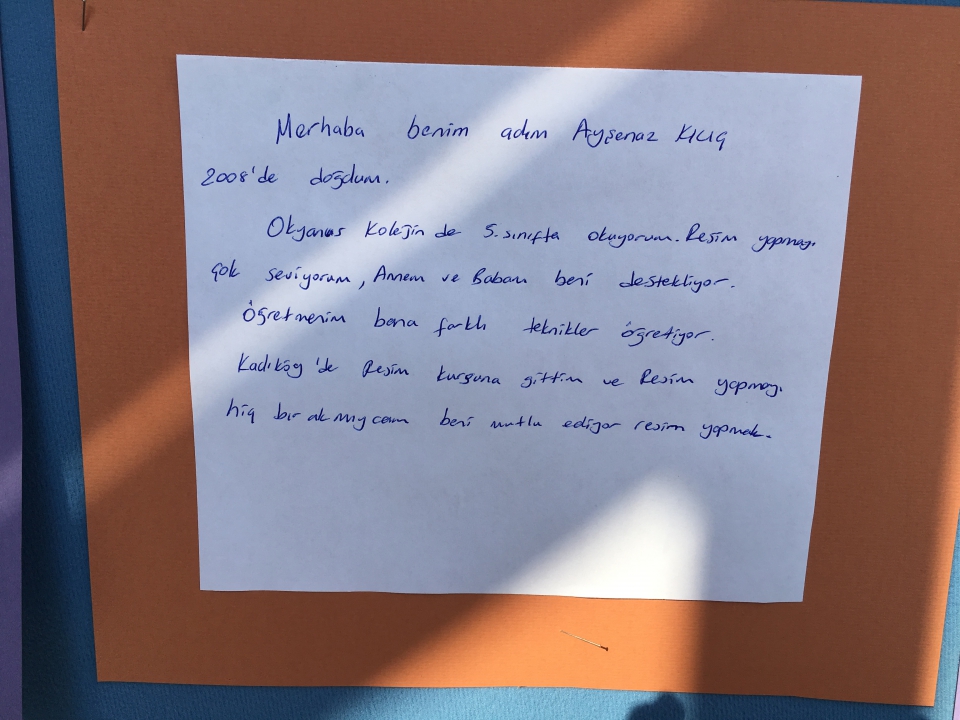 Merhaba benim adım Ayşenaz KILIÇ
2008'de doğdum.
Okyanus Kolejin de 5.sınıfta okuyorum. Resim yapmayı
çok seviyorum, Annem ve Babam beni destekliyor.
Öğretmenim bana farklı teknikler öğretiyor.
Kadıköy'de Resim kursuna gittim ve Resim yapmayı
hiç bırakmıycam beni mutlu ediyor resim yapmak.